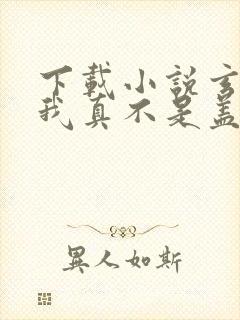 下載小說玄
我真不是蓋
異人如斯